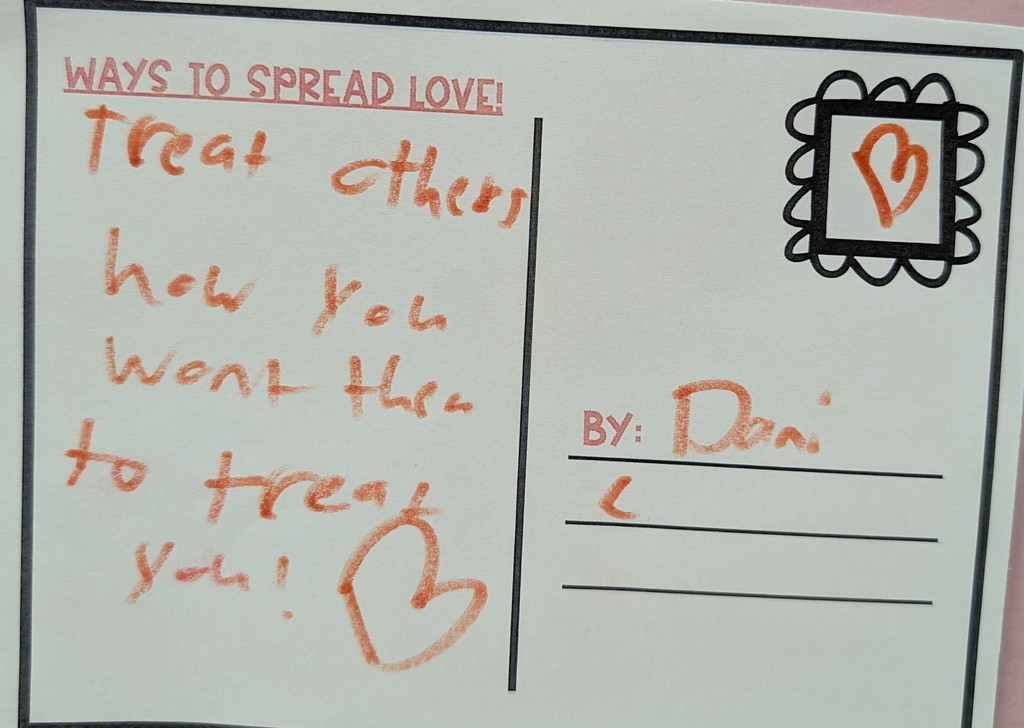 WAYS TO SPREAD LOVE!
Treat others
how you
wont them
to treat
you!
BY: Dani
C